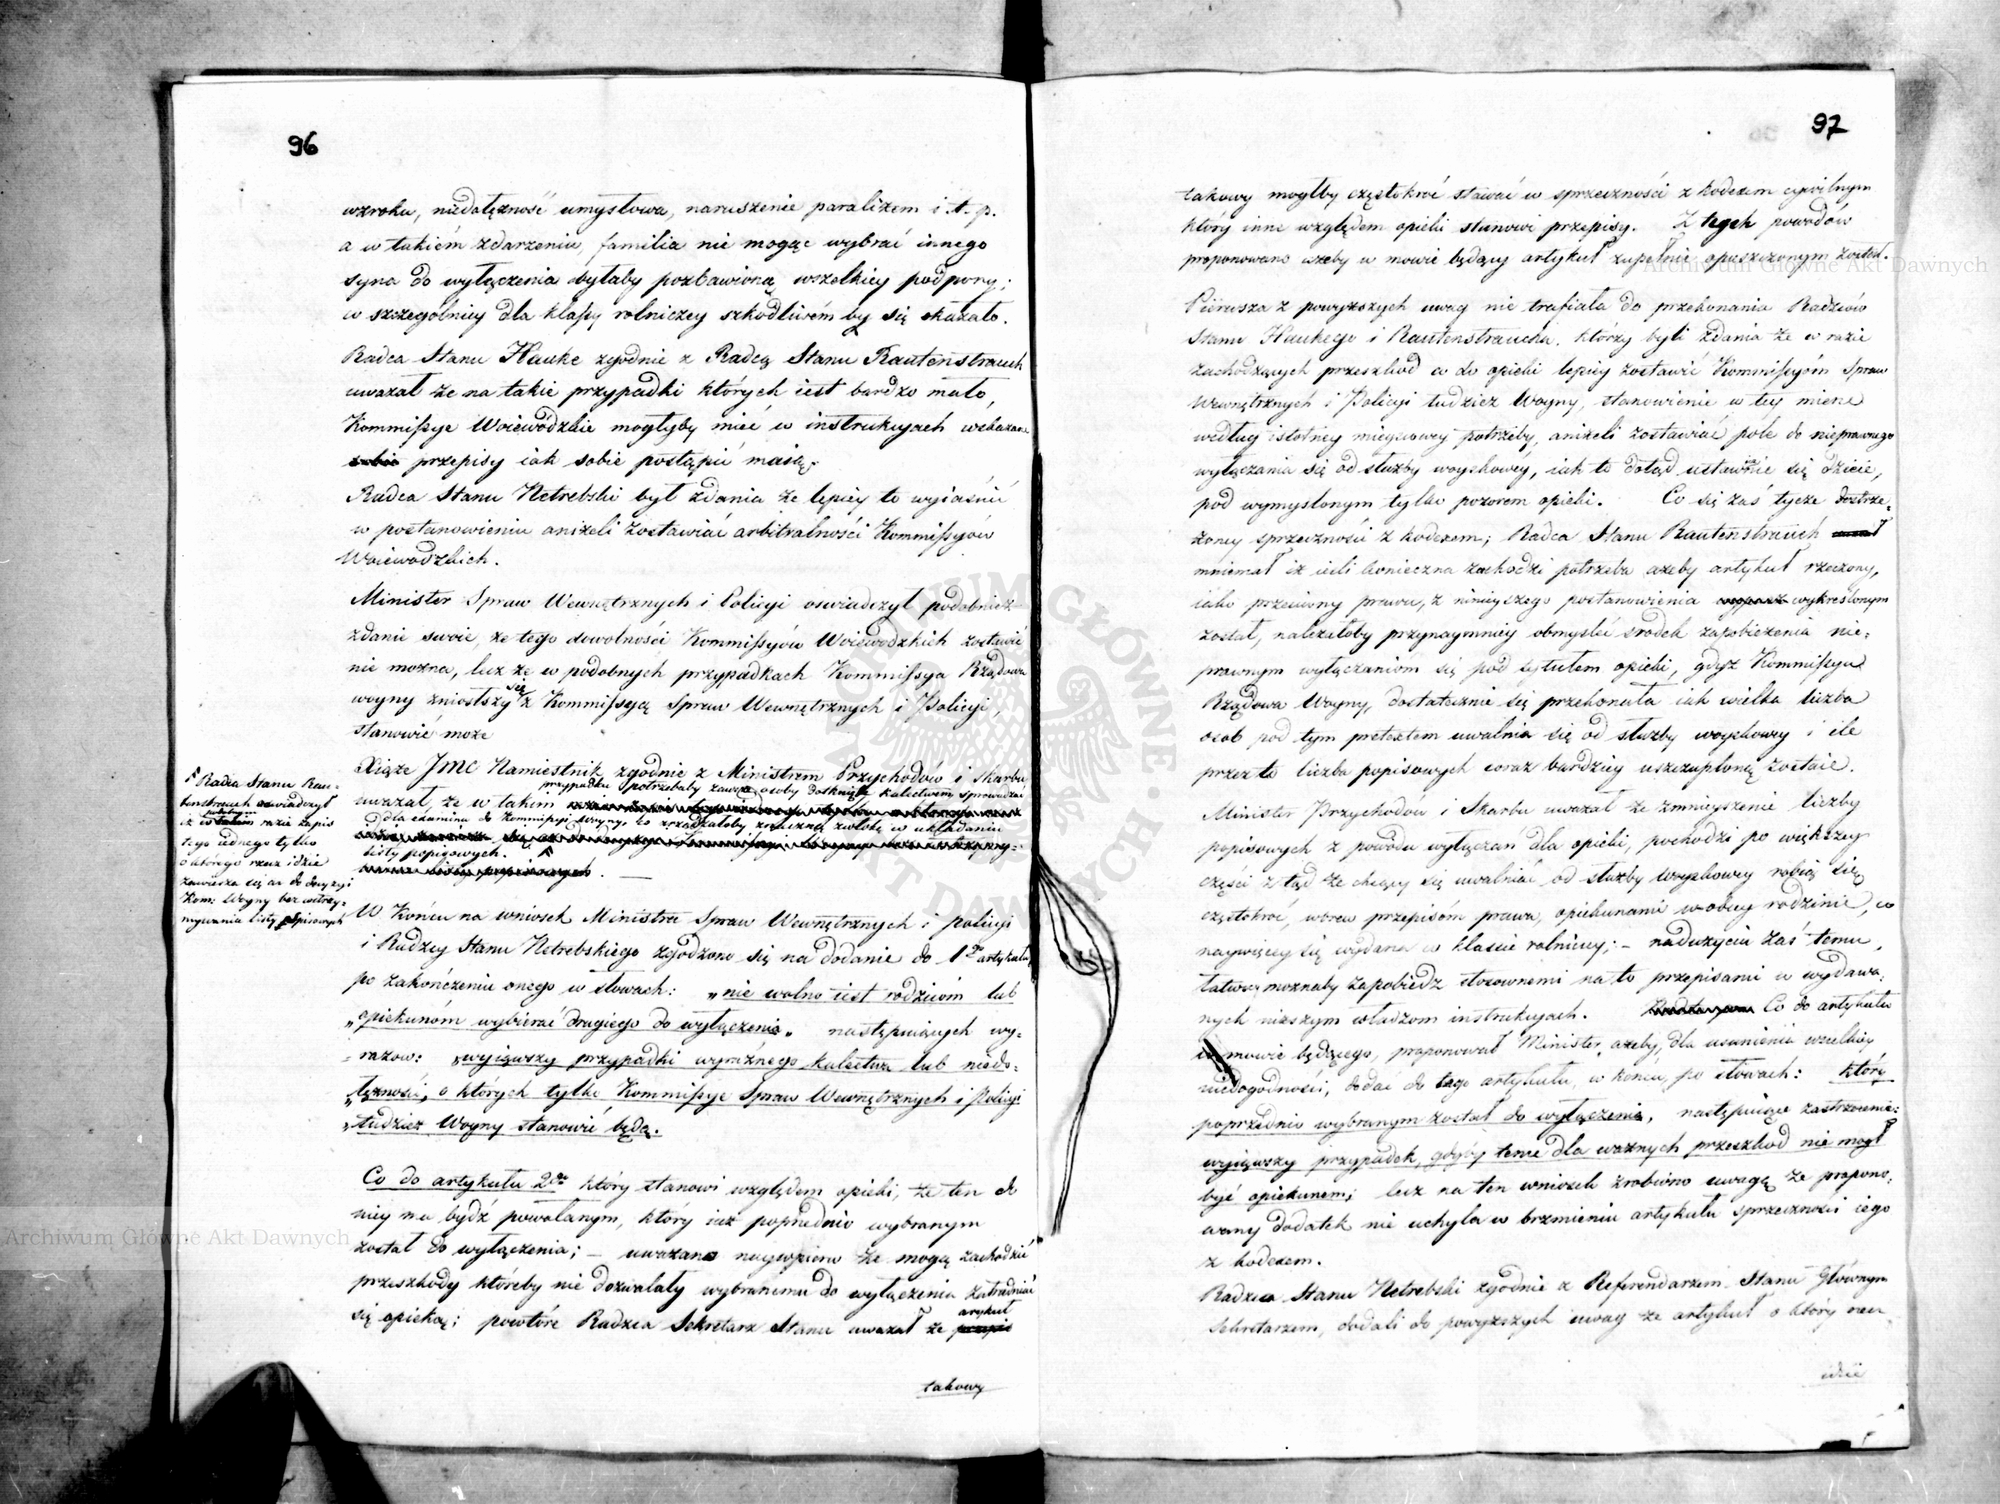 96
wzroku, niedołężność umysłowa, naruszenie paraliżem i. t. p.
a w takiém zdarzeniu, familia nie mogąc wybrać innego
syna do wyłączenia byłaby pozbawioną wszelkiey podpory;
co szczególniey dla klassy rolniczey szkodliwém by się okazało.
Radca Stanu Hauke zgodnie z Radcą Stanu Rautenstrauch
uważał że na takie przypadki których iest bardzo mało,
Kommissye Woiewódzkie mogłyby mieć w instrukcyach wskazane
przepisy iak sobie postąpić maią.
Radca Stanu Netrebski był zdania że lepiey to wyiaśnić
w postanowieniu aniżeli zostawiać arbitralności Kommissyów
Woiewódzkich.
Minister Spraw Wewnętrznych i Policyi oświadczył podobnież
zdanie swoie, że tego dowolności Kommissyów Woiewódzkich zostawić
nie można, lecz że w podobnych przypadkach Kommissya Rządowa
woyny zniosłszy się z Kommissyą Spraw Wewnętrznych i Policyi,
stanowić może
Xiąże JMC Namiestnik zgodnie z Ministrem Przychodów i Skarbu
uważał, że w takim przypadku potrzebaby zawsze osoby dotknięte kalectwem sprowadzać
dla examinu do Kommissyi woyny, co zrządzałoby znaczną zwłokę w układaniu
listy popisowych.
Radca Stanu Rau-
tenstrauch oświadczył
iż w takim razie zapis
tego iednego tylko
o którego rzecz idzie
zawiesza się aż do decyzyi
Kom: Woyny bez wstrzy-
mywania listy popisowych
W Końcu na wniosek Ministra Spraw Wewnętrznych i policyi
i Radzcy Stanu Netrebskiego zgodzono się na dodanie do 1go artykułu
po zakończeniu onego w słowach: „nie wolno iest rodzicóm lub
„opiekunóm wybierać drugiego do wyłączenia„ następuiących wy-
razow: „wyiąwszy przypadki wyraźnego kalectwa lub niedo-
„łężności, o których tylko Kommissye Spraw Wewnętrznych i Policyi
„tudzież Woyny stanowić będą.
Co do artykułu 2go który stanowi względem opieki, że ten do
niey ma bydź powołanym, który iuż poprzednio wybranym
został do wyłączenia; – uważano naypierw że mogą zachodzić
przeszkody któreby nie dozwalały wybranemu do wyłączenia zatrudniać
się opieką; powtóre Radzca Sekretarz Stanu uważał że artykuł
takowy
97
takowy mogłby częstokroć stawać w sprzeczności z kodexem cywilnym
który inne względem opieki stanowi przepisy. Z tych powodów
proponowano ażeby w mowie będący artykuł zupełnie opuszczonym został.
Pierwsza z powyższych uwag nie trafiała do przekonania Radzców
Stanu Haukego i Rautenstraucha, którzy byli zdania że w razie
zachodzących przeszkod co do opieki lepiey zostawić Kommissyóm Spraw
Wewnętrznych i Policyi tudzież Woyny, stanowienie w tey mierze
według istotney mieyscowey potrzeby, aniżeli zostawiać pole do nieprawnego
wyłączania się od służby woyskowéy, iak to dotąd ustawicznie się dzieie,
pod wymyslonym tylko pozorem opieki. Co się zaś tycze dostrze-
żoney sprzeczności z kodexem; Radca Stanu Rautenstrauch
mniemał iż ieśli konieczna zachodzi potrzeba ażeby artykuł rzeczony,
iako przeciwny prawu, z ninieyszego postanowienia wykreślonym
został, należałoby przynaymniey obmyśleć srodek zapobieżenia nie-
prawnym wyłączaniom się pod tytułem opieki, gdyż Kommissya
Rządowa Woyny, dostatecznie się przekonała iak wielka liczba
osob pod tym pretextem uwalnia się od służby woyskowey i ile
przez to liczba popisowych coraz bardziey uszczuploną zostaie.
Minister Przychodów i Skarbu uważał że zmnieyszenie liczby
popisowych z powodu wyłączań dla opieki, pochodzi po większey
części ztąd że chcący się uwalniać od służby woyskowey robią się
częstokroć, wbrew przepisóm prawa, opiekunami w obcey rodzinie, co
naywięcey się wydarza w klassie rolniczey; – nadużyciu zaś temu,
łatwo możnaby zapobiedz stosownemi na to przepisami w wydawa-
nych niższym władzom instrukcyach. Co do artykułu
w mowie będącego, proponował Minister, ażeby, dla usunienia wszelkiey
niedogodności, dodać do tego artykułu, w końcu, po słowach: który
poprzednio wybranym został do wyłączenia, następuiące zastrzeżenie:
wyiąwszy przypadek, gdyby tenże dla ważnych przeszkod nie mogł
być opiekunem; lecz na ten wniosek zrobiono uwagę że propono-
wany dodatek nie uchyla w brzmieniu artykułu sprzeczności iego
z kodexem.
Radzca Stanu Netrebski zgodnie z Referendarzem Stanu Głównym
Sekretarzem, dodali do powyższych uwag że artykuł o który rzecz
idzie
Archiwum Główne Akt Dawnych
Archiwum Główne Akt Dawnych
ARCHIWUM GŁÓWNE AKT DAWNYCH